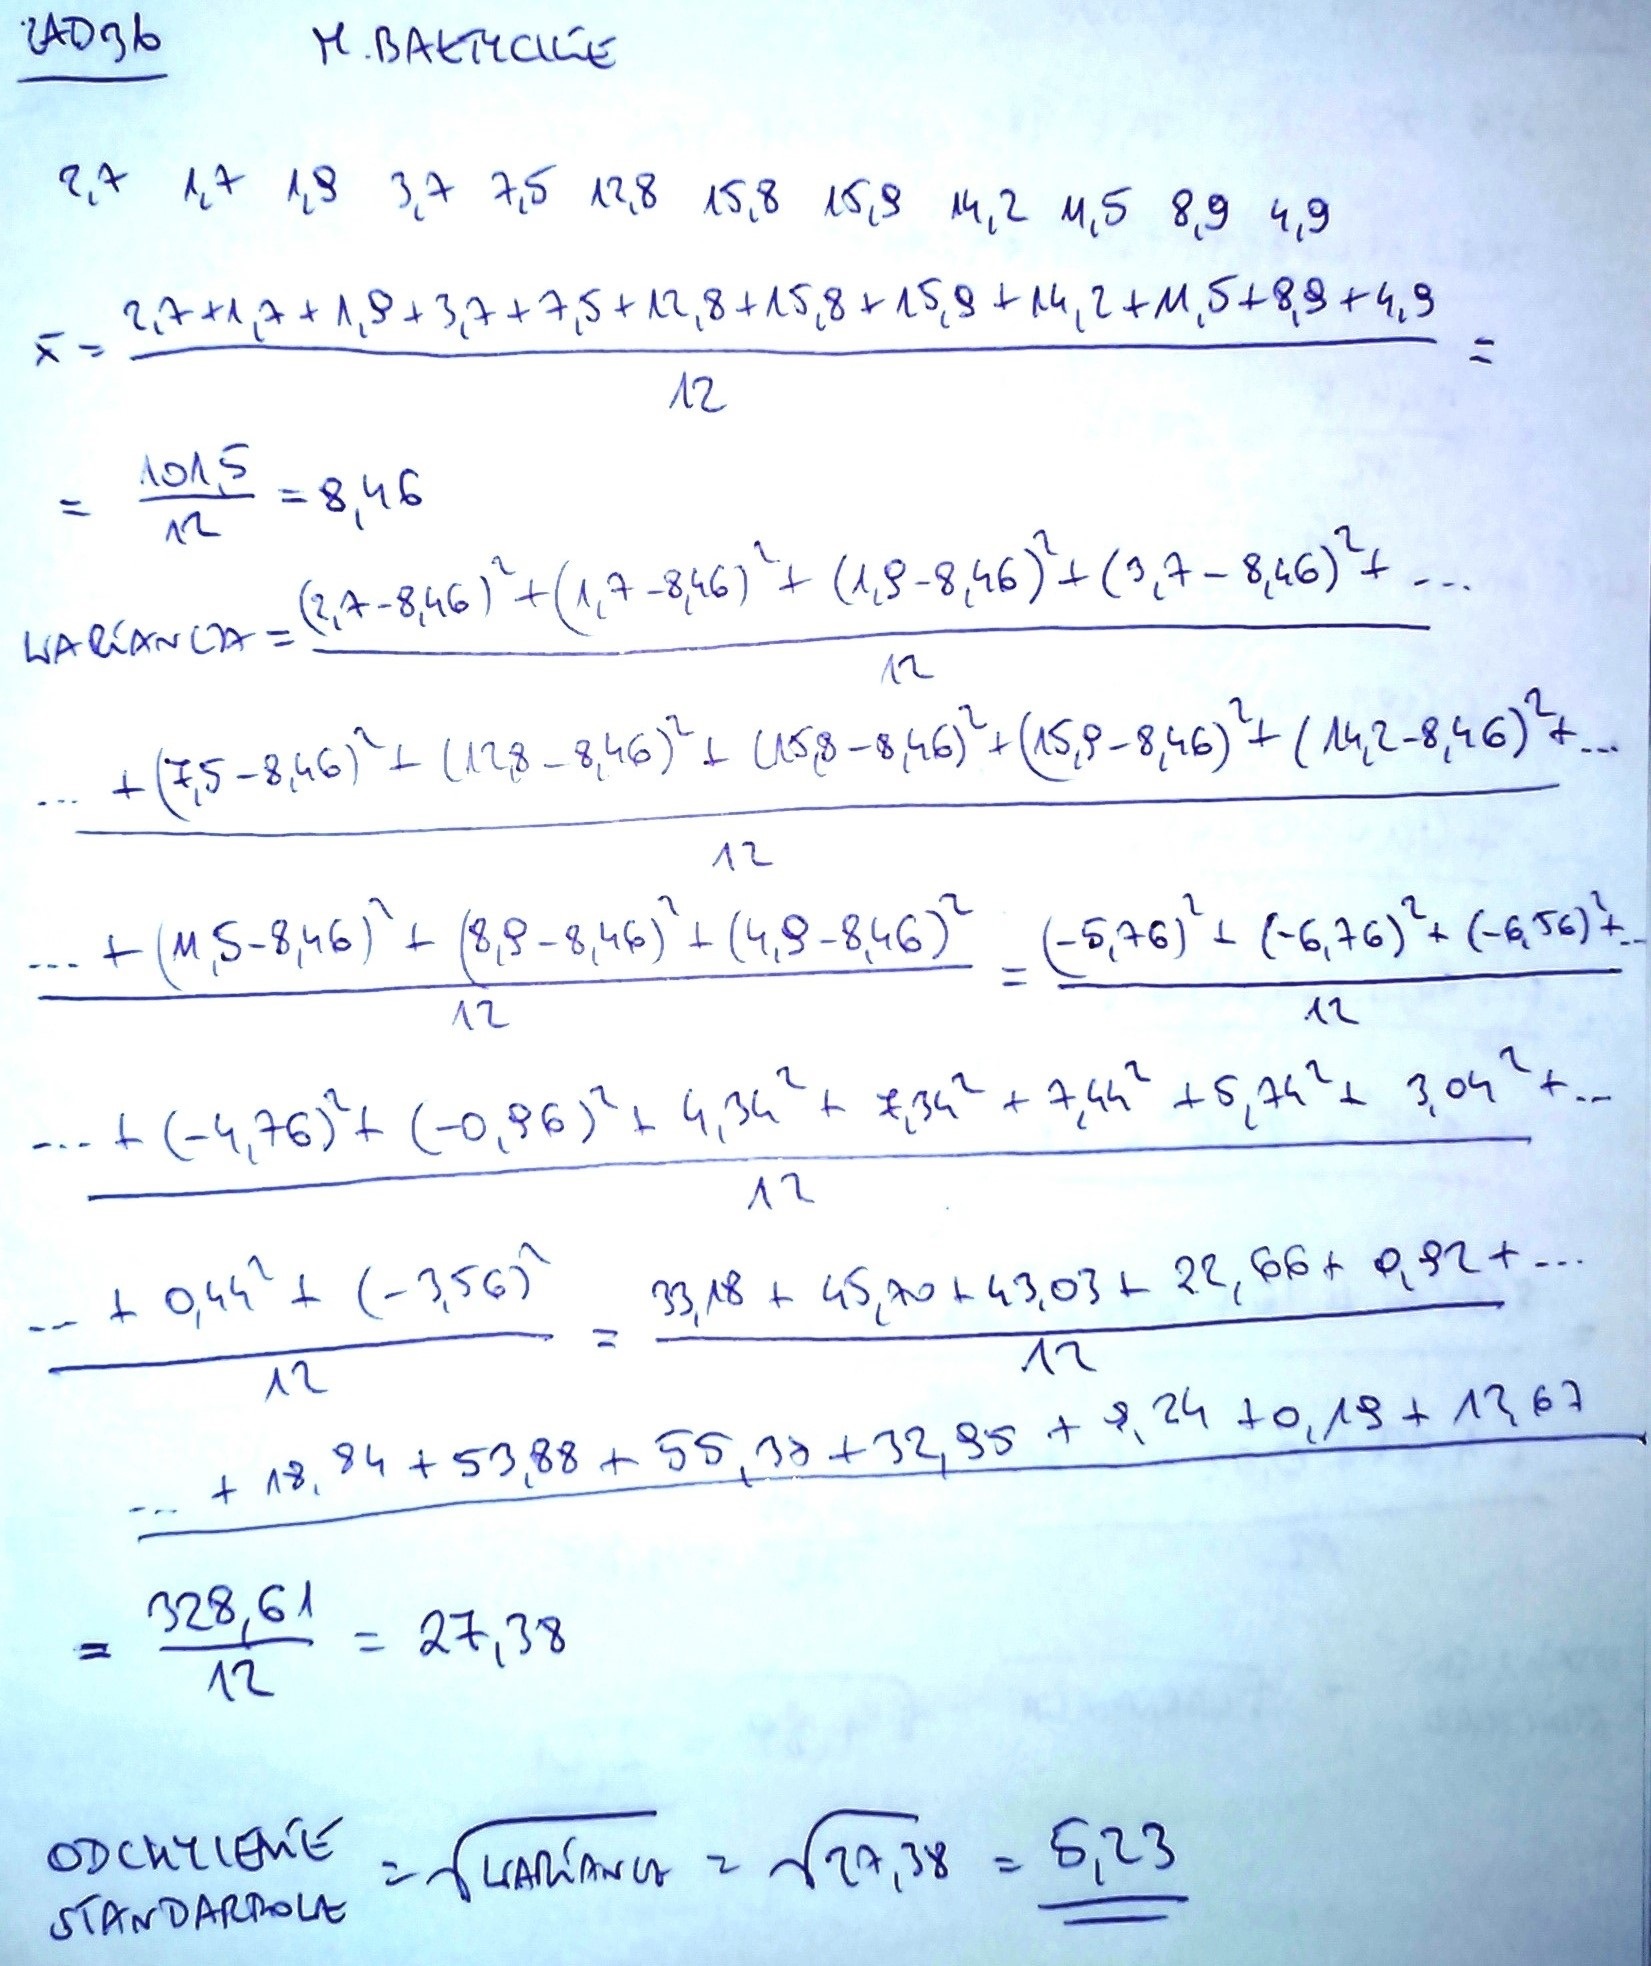 ZAD 3b M. BAŁTYCKIE
2,7 1,7 1,9 3,7 7,5 12,8 15,8 15,9 14,2 11,5 8,9 4,9
x̄ = 2,7+1,7+1,9+3,7+7,5+12,8+15,8+15,9+14,2+11,5+8,9+4,9 =
12
= 101,5 / 12 = 8,46
WARIANCJA = (2,7-8,46)² + (1,7-8,46)² + (1,9-8,46)² + (3,7-8,46)² + ...
12
... + (7,5-8,46)² + (12,8-8,46)² + (15,8-8,46)² + (15,9-8,46)² + (14,2-8,46)² + ...
12
... + (11,5-8,46)² + (8,9-8,46)² + (4,9-8,46)² = (-5,76)² + (-6,76)² + (-6,56)² + ...
12 12
... + (-4,76)² + (-0,96)² + 4,34² + 7,34² + 7,44² + 5,74² + 3,04² + ...
12
... + 0,44² + (-3,56)² = 33,18 + 45,70 + 43,03 + 22,66 + 0,92 + ...
12 12
... + 18,84 + 53,88 + 55,35 + 32,95 + 9,24 + 0,19 + 12,67
= 328,61 / 12 = 27,38
ODCHYLENIE
STANDARDOWE = √WARIANCJA = √27,38 = 5,23